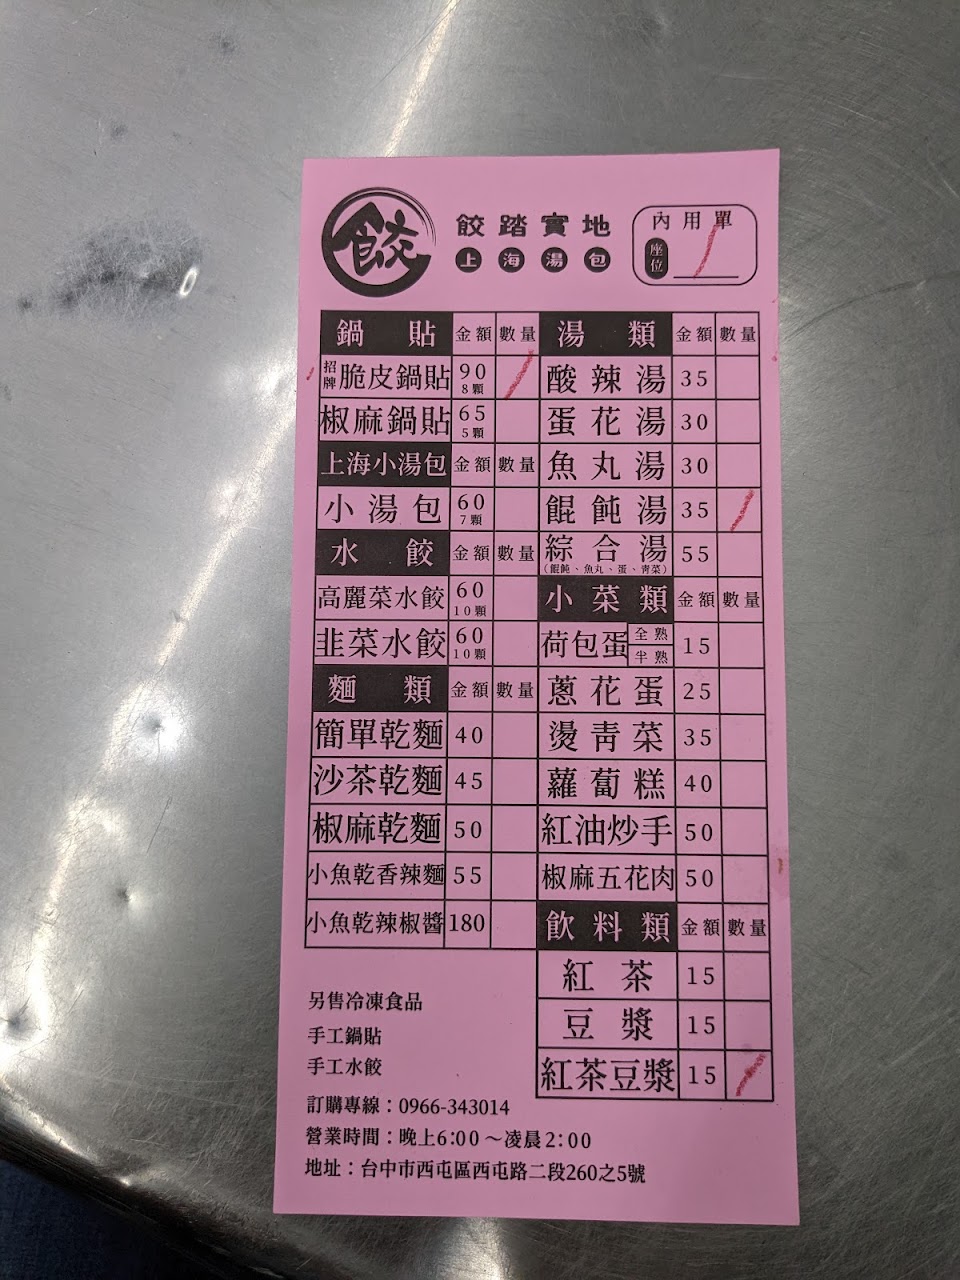 餃
餃踏實地
上海湯包
內用單
座位
鍋貼 金額 數量
招牌 脆皮鍋貼 90 8顆
椒麻鍋貼 65 5顆
上海小湯包 金額 數量
小湯包 60 7顆
水餃 金額 數量
高麗菜水餃 60 10顆
韭菜水餃 60 10顆
麵類 金額 數量
簡單乾麵 40
沙茶乾麵 45
椒麻乾麵 50
小魚乾香辣麵 55
小魚乾辣椒醬 180
湯類 金額 數量
酸辣湯 35
蛋花湯 30
魚丸湯 30
餛飩湯 35
綜合湯 55
(餛飩、魚丸、蛋、青菜)
小菜類 金額 數量
荷包蛋 全熟 半熟 15
蔥花蛋 25
燙青菜 35
蘿蔔糕 40
紅油炒手 50
椒麻五花肉 50
飲料類 金額 數量
紅茶 15
豆漿 15
紅茶豆漿 15
另售冷凍食品
手工鍋貼
手工水餃
訂購專線：0966-343014
營業時間：晚上6:00～凌晨2:00
地址：台中市西屯區西屯路二段260之5號